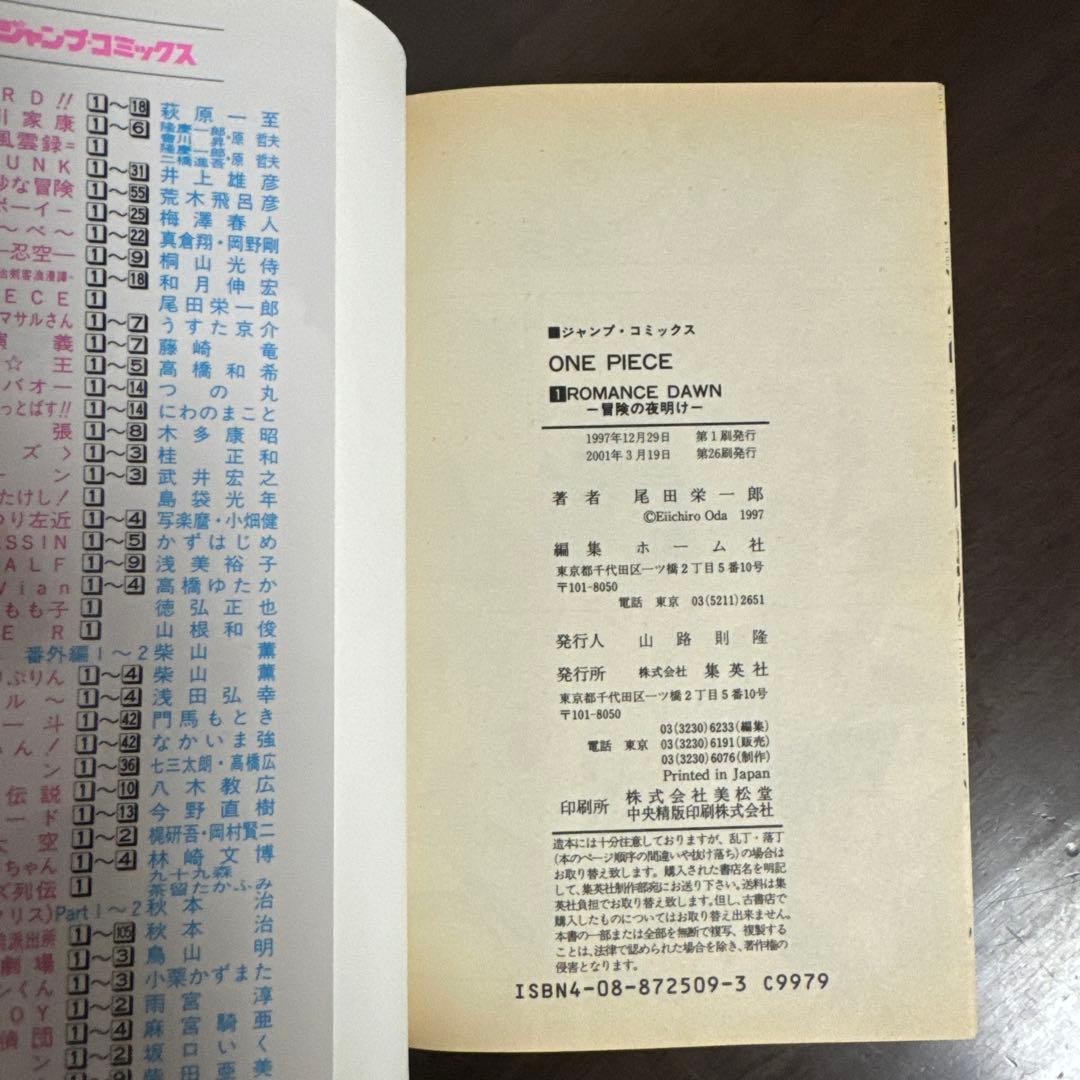 ジャンプ・コミックス
RD!! 1～18 萩原一至
川家康 1～6 隆慶一郎・原 哲夫
會川 昇
風雲録= 1 隆慶一郎・原 哲夫
二橋進吾
UNK 1～31 井上雄彦
妙な冒険 1～55 荒木飛呂彦
ボーイ− 1～25 梅澤春人
～べ～ 1～22 真倉翔・岡野剛
―忍空― 1～9 桐山光侍
剣客浪漫譚- 1～18 和月伸宏
ECE 1 尾田栄一郎
マサルさん 1～7 うすた京介
演義 1～7 藤崎竜
☆王 1～5 高橋和希
バオー 1～14 つの丸
っとばす!! 1～14 にわのまこと
張 1～8 木多康昭
ズ> 1～3 桂正和
ーン 1～3 武井宏之
たけし! 1 島袋光年
り左近 1～4 写楽麿・小畑健
SSIN 1～5 かずはじめ
ALF 1～9 浅美裕子
Vian 1～4 高橋ゆたか
もも子 1 徳弘正也
ER 1 山根和俊
番外編1～2 柴山薫
りぷりん 1～4 柴山薫
ル～ 1～4 浅田弘幸
一斗 1～42 門馬もとき
ん! 1～42 なかいま強
ン 1～36 七三太朗・高橋広
伝説 1～10 八木教広
ード 1～13 今野直樹
大空 1～2 梶研吾・岡村賢二
ちゃん 1～4 林崎文博
ズ列伝 1 九十九森
茶留たかふみ
クリス)Part1～2 秋本治
派出所 1～105 秋本治
劇場 1～3 鳥山明
ンくん 1～3 小栗かずまた
OY 1～2 雨宮淳
偵団 1～4 麻宮騎亜
ン 1～2 坂口いく
柴田亜美
■ジャンプ・コミックス
ONE PIECE
1ROMANCE DAWN
―冒険の夜明け―
1997年12月29日 第1刷発行
2001年3月19日 第26刷発行
著者 尾田栄一郎
©Eiichiro Oda 1997
編集 ホーム社
東京都千代田区一ツ橋2丁目5番10号
〒101-8050
電話 東京 03(5211)2651
発行人 山路則隆
発行所 株式会社 集英社
東京都千代田区一ツ橋2丁目5番10号
〒101-8050
03(3230)6233(編集)
電話 東京 03(3230)6191(販売)
03(3230)6076(制作)
Printed in Japan
印刷所 株式会社美松堂
中央精版印刷株式会社
造本には十分注意しておりますが、乱丁・落丁
(本のページ順序の間違いや抜け落ち)の場合は
お取り替え致します。購入された書店名を明記
して、集英社制作部宛にお送り下さい。送料は集
英社負担でお取り替え致します。但し、古書店で
購入したものについてはお取り替え出来ません。
本書の一部または全部を無断で複写、複製する
ことは、法律で認められた場合を除き、著作権の
侵害となります。
ISBN4-08-872509-3 C9979